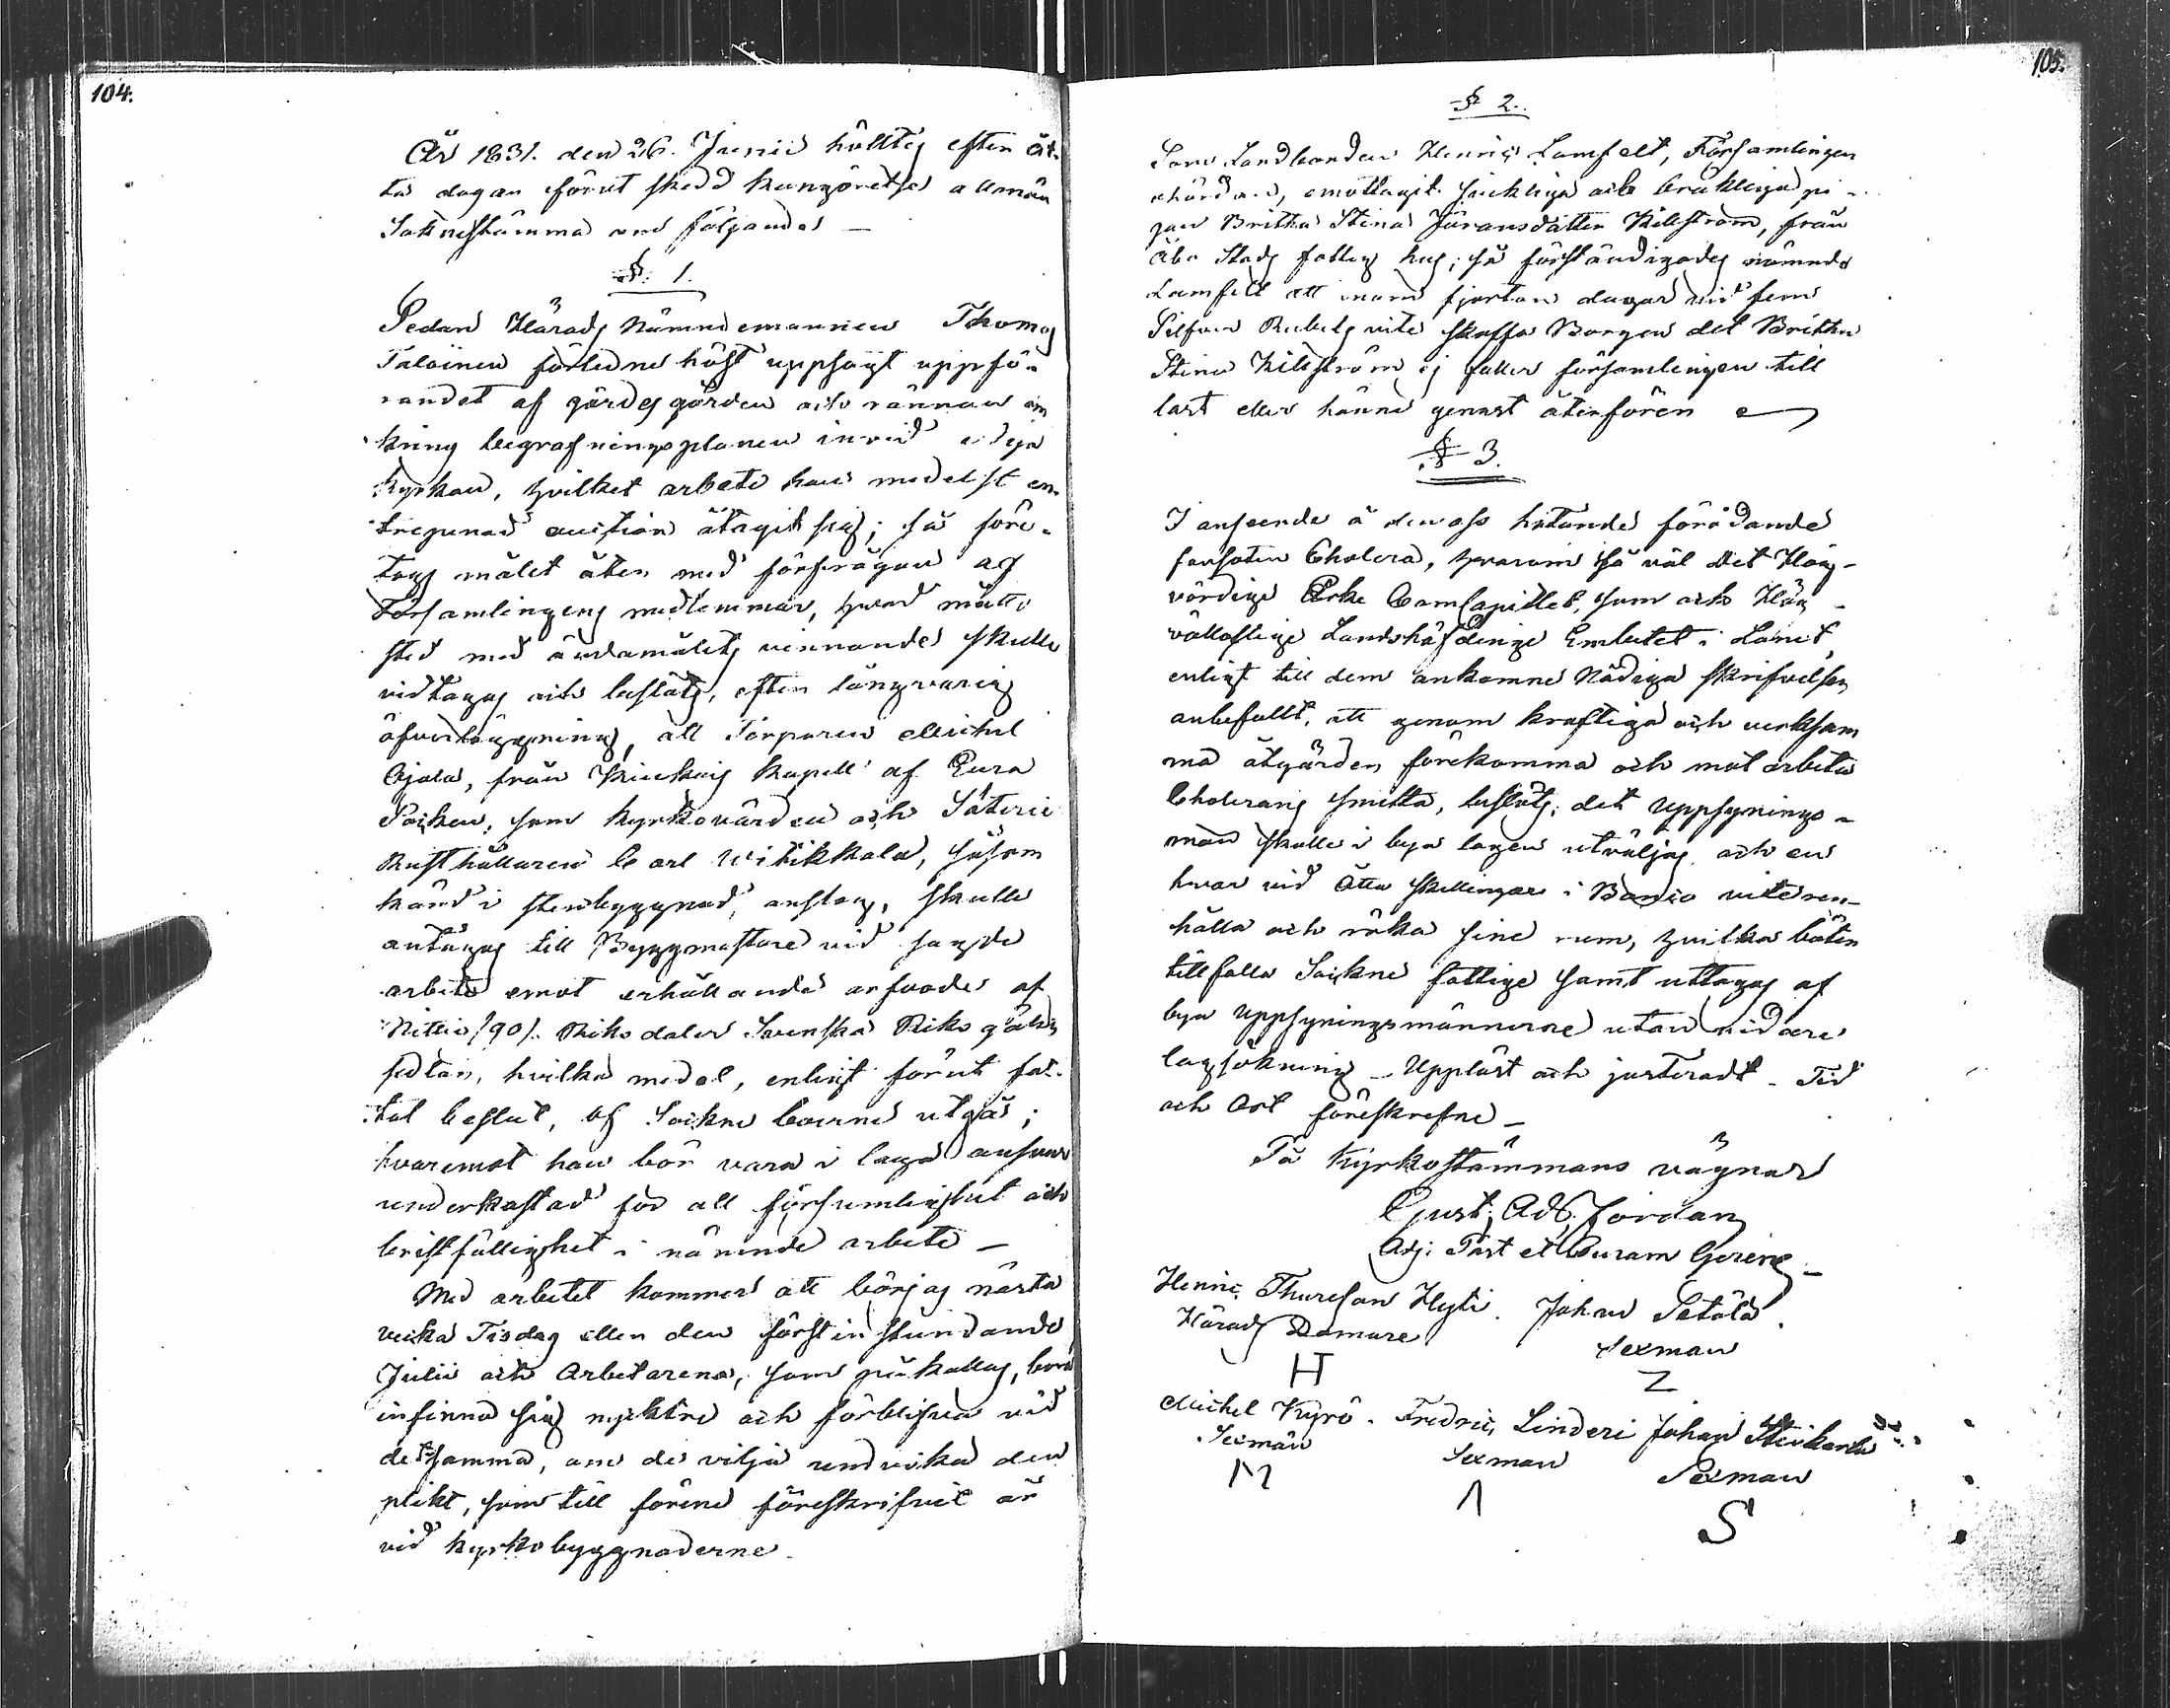 104.
År 1831. den 26. Junii hölltes efter åt-
ta dagar förut skedd kungörelse allmän
Soknestämma om följande —
§ 1.
Sedan Härads Nämndemannen Thomas
Taloinen förledne höst uppsagt uppfö-
randet af gärdesgården och rännan om
kring begrafningsplanen invid nya
kyrkan, hvilket arbete han medelst en-
treprenad auction åtagit sig; så före-
togs målet åter med förfrågan af
Församlingens medlemmar, hvad mått o
sted med ändamålets vinnande skulle
vidtagas och beslöts, efter långvarig
öfverläggning, att Torparen Michel
Ojala, från Kiukais Kapell af Eura
Socken, som kyrkovärden och Säterie
Rusthållaren Carl Witikkala, såsom
känd i stenbyggnad, anslog, skulle
antagas till Byggmästare vid sagde
arbete emot erhållande arfvode af
Nittio /90/. Riksdaler Svenska Riksgälds
sedlar, hvilka medel, enligt förut fat-
tat beslut, af Sockne boerne utgås;
hvaremot han bör vara i laga ansvar
underkastad för all försumlighet och
bristfällighet i nämnde arbete —
Med arbetet kommer att börjas nästa
vecka Tisdag eller den först instundande
Julii och Arbetarena, som påkallas, böra
infinna sig nycktre och förblifva vid
detsamma, om de vilja undvika den
plikt, som till förene föreskrifvit är
vid kyrkobyggnaderne.
105.
§ 2.
Som Landbonden Henric Lamfelt, Församlingen
ohörd, emottagit sjuklige och bräkliga pi-
gan Britha Stina Jöransdotter Killström, från
Åbo Stads fattig hus; så förständigades nämnde
Lamfelt att inom fjorton dagar vid fem
Silfver Rubels vite skaffa Borgen det Britha
Stina Killström ej faller församlingen till
last eller hänne genast återföra
§ 3.
I anseende å den oss hotande förödande
farsoten Cholera, hvarom så väl det Hög-
vördige Erke Domcapitlet, som och Hög-
vällofliga Landshöfdinge Embetet i Länet,
enligt till dem ankomne Nådiga skrifvelser
anbefallt, att genom kraftiga och verksam
ma åtgärder förekomma och motarbeta
Cholerans smitta, beslöts: det Uppsynings-
män skulle i bya lagen utväljas och en
hvar vid Åtta skillingar i Banco vite ren-
hålla och röka sine rum, hvilka böter
tillfalla Sockne fattige samt uttagas af
bya Uppsyningsmännerne utan vidare
lagsökning — Uppläst och justeradt. Tid
och Ort föreskrefne —
På Kyrkostämmans vägnar
Gust; Ad; Jordan
Adj: Past et Curam Gerens —
Henric Thuresson Hyti. Johan Setälä.
Härads Domare Sexman
H Z
Michel Kyrö. Fredric Linderi Johan
Sexman Sexman Sexman
M Λ S